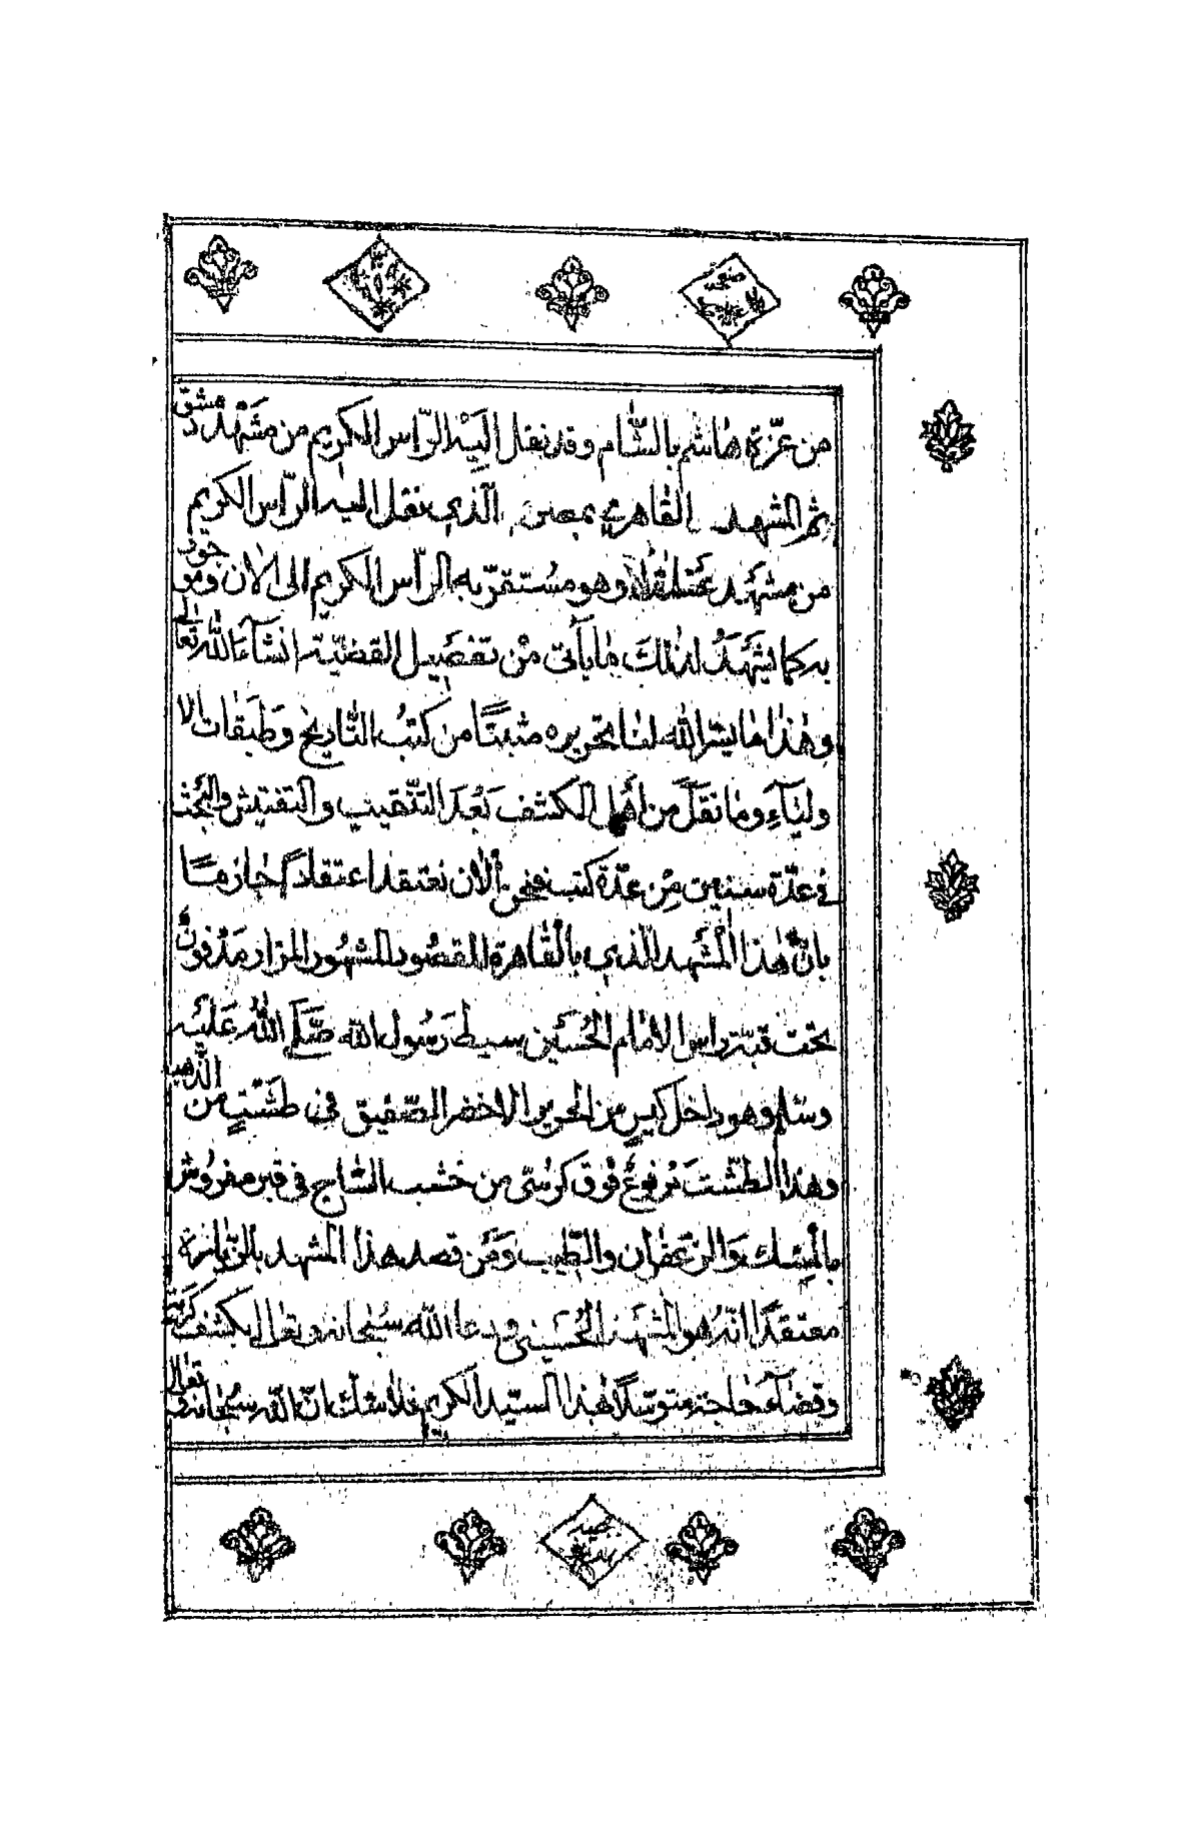 من غزة هاشم بالشام وقد نقل اليه الراس الكريم من مشهد دمشق
ثم المشهد القاهري بمصر الذي نقل اليه الراس الكريم
من مشهد عسقلان وهو مستقر به الراس الكريم الى الان وموجود
به كما يشهد لذلك ما يأتى من تفضيل القضية انشآء الله تعالى
وهذا ما يسر الله لنا تحريره مثبتًا من كتب التاريخ وطبقات الا
ولياء وما نقل من أهل الكشف بعد التنقيب والتفتيش والبحث
فى عدّة سنين من عدّة كتب فنحن الان نعتقد اعتقادًا جازمًا
بانّ هذا المشهد الذي بالقاهرة المقصود المشهور المزار مدفون
تحت قبته راس الامام الحسين سبط رسول الله صلى الله عليه
وسلم وهو داخل كيس من الحرير الاخضر الصفيق فى طشت من الذهب
وهذا الطشت مرفوع فوق كرسى من خشب الساج فى قبر مفروش
بالمسك والزعفران والطيب ومن قصد هذا المشهد بالزيارة
معتقدًا انّه هو المشهد الحسينى ودعا الله سبحانه وتعالى بكشف كربته
وقضآء حاجته متوسّلاً بهذا السيّد الكريم فلا شك انّ الله سبحانه وتعالى